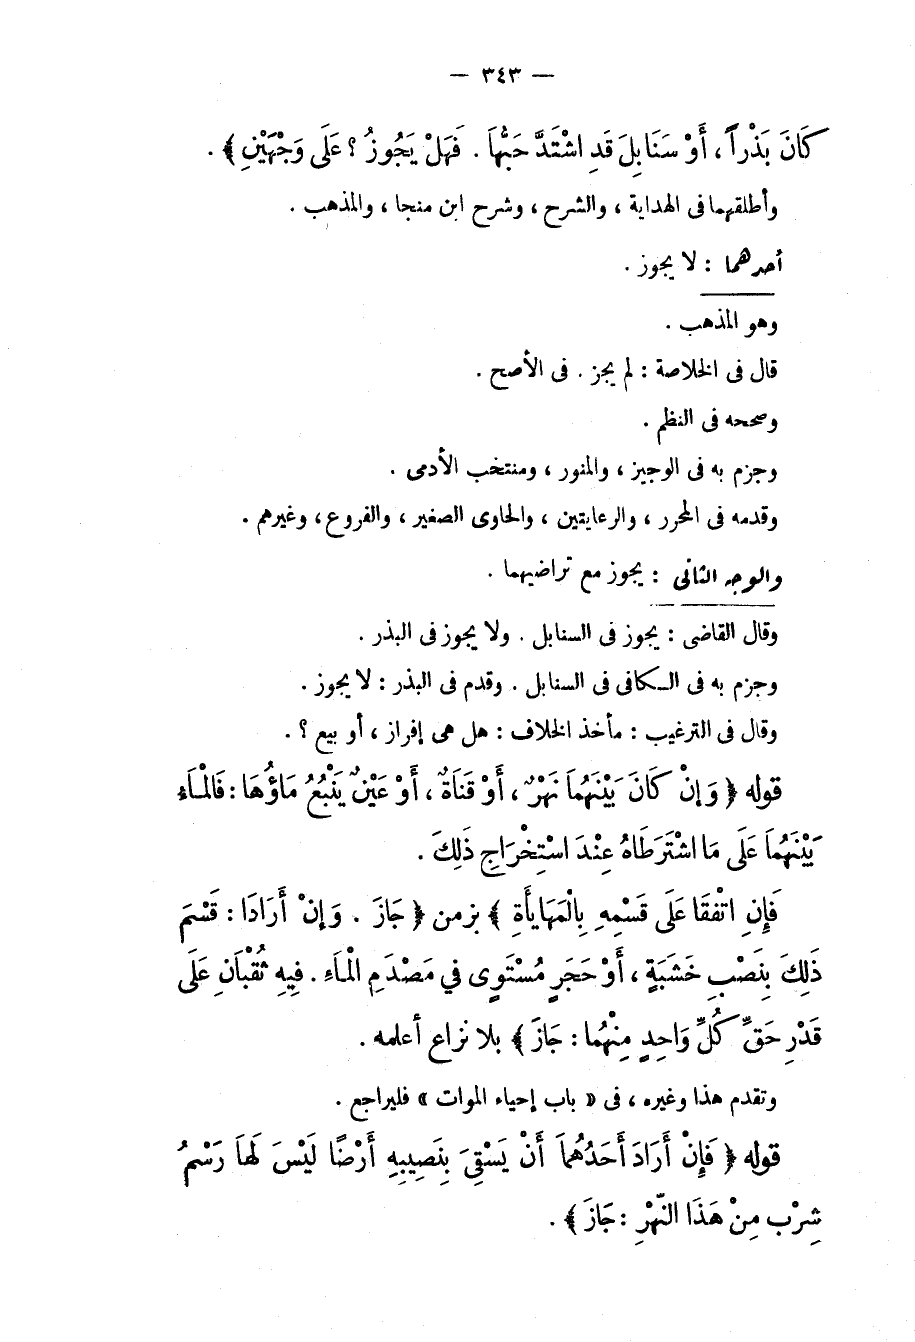 — ٣٤٣ —
كَانَ بَذْراً ، أَوْ سَنَابِلَ قَدِ اشْتَدَّ حَبُّهَا . فَهَلْ يَجُوزُ ؟ عَلَى وَجْهَيْنِ ﴾ .
وأطلقهما فى الهداية ، والشرح ، وشرح ابن منجا ، والمذهب .
أحدهما : لا يجوز .
وهو المذهب .
قال فى الخلاصة : لم يجز . فى الأصح .
وصححه فى النظم .
وجزم به فى الوجيز ، والمنور ، ومنتخب الأدمى .
وقدمه فى المحرر ، والرعايتين ، والحاوى الصغير ، والفروع ، وغيرهم .
والوجه الثانى : يجوز مع تراضيهما .
وقال القاضى : يجوز فى السنابل . ولا يجوز فى البذر .
وجزم به فى الكافى فى السنابل . وقدم فى البذر : لا يجوز .
وقال فى الترغيب : مأخذ الخلاف : هل هى إفراز ، أو بيع ؟ .
قوله ﴿ وَإِنْ كَانَ بَيْنَهُمَا نَهْرٌ ، أَوْ قَنَاةٌ ، أَوْ عَيْنٌ يَنْبُعُ مَاؤُهَا : فَالْمَاءِ
بَيْنَهُمَا عَلَى مَا اشْتَرَطَاهُ عِنْدَ اسْتِخْرَاجِ ذَلِكَ .
فَإِنِ اتَّفَقَا عَلَى قَسْمِهِ بِالْمَهَايَأَةِ ﴾ بزمن ﴿ جَازَ . وَإِنْ أَرَادَا : قَسْمَ
ذَلِكَ بِنَصْبِ خَشَبَةٍ ، أَوْ حَجَرٍ مُسْتَوِى فِي مَصْدَمِ الْمَاءِ . فِيهِ ثُقْبَانِ عَلَى
قَدْرِ حَقِّ كُلِّ وَاحِدٍ مِنْهُمَا : جَازَ ﴾ بلا نزاع أعلمه .
وتقدم هذا وغيره ، فى « باب إحياء الموات » فليراجع .
قوله ﴿ فَإِنْ أَرَادَ أَحَدُهُمَا أَنْ يَسْقِىَ بِنَصِيبِهِ أَرْضًا لَيْسَ لَهَا رَسْمُ
شِرْبٍ مِنْ هَذَا النَّهْرِ : جَازَ ﴾ .